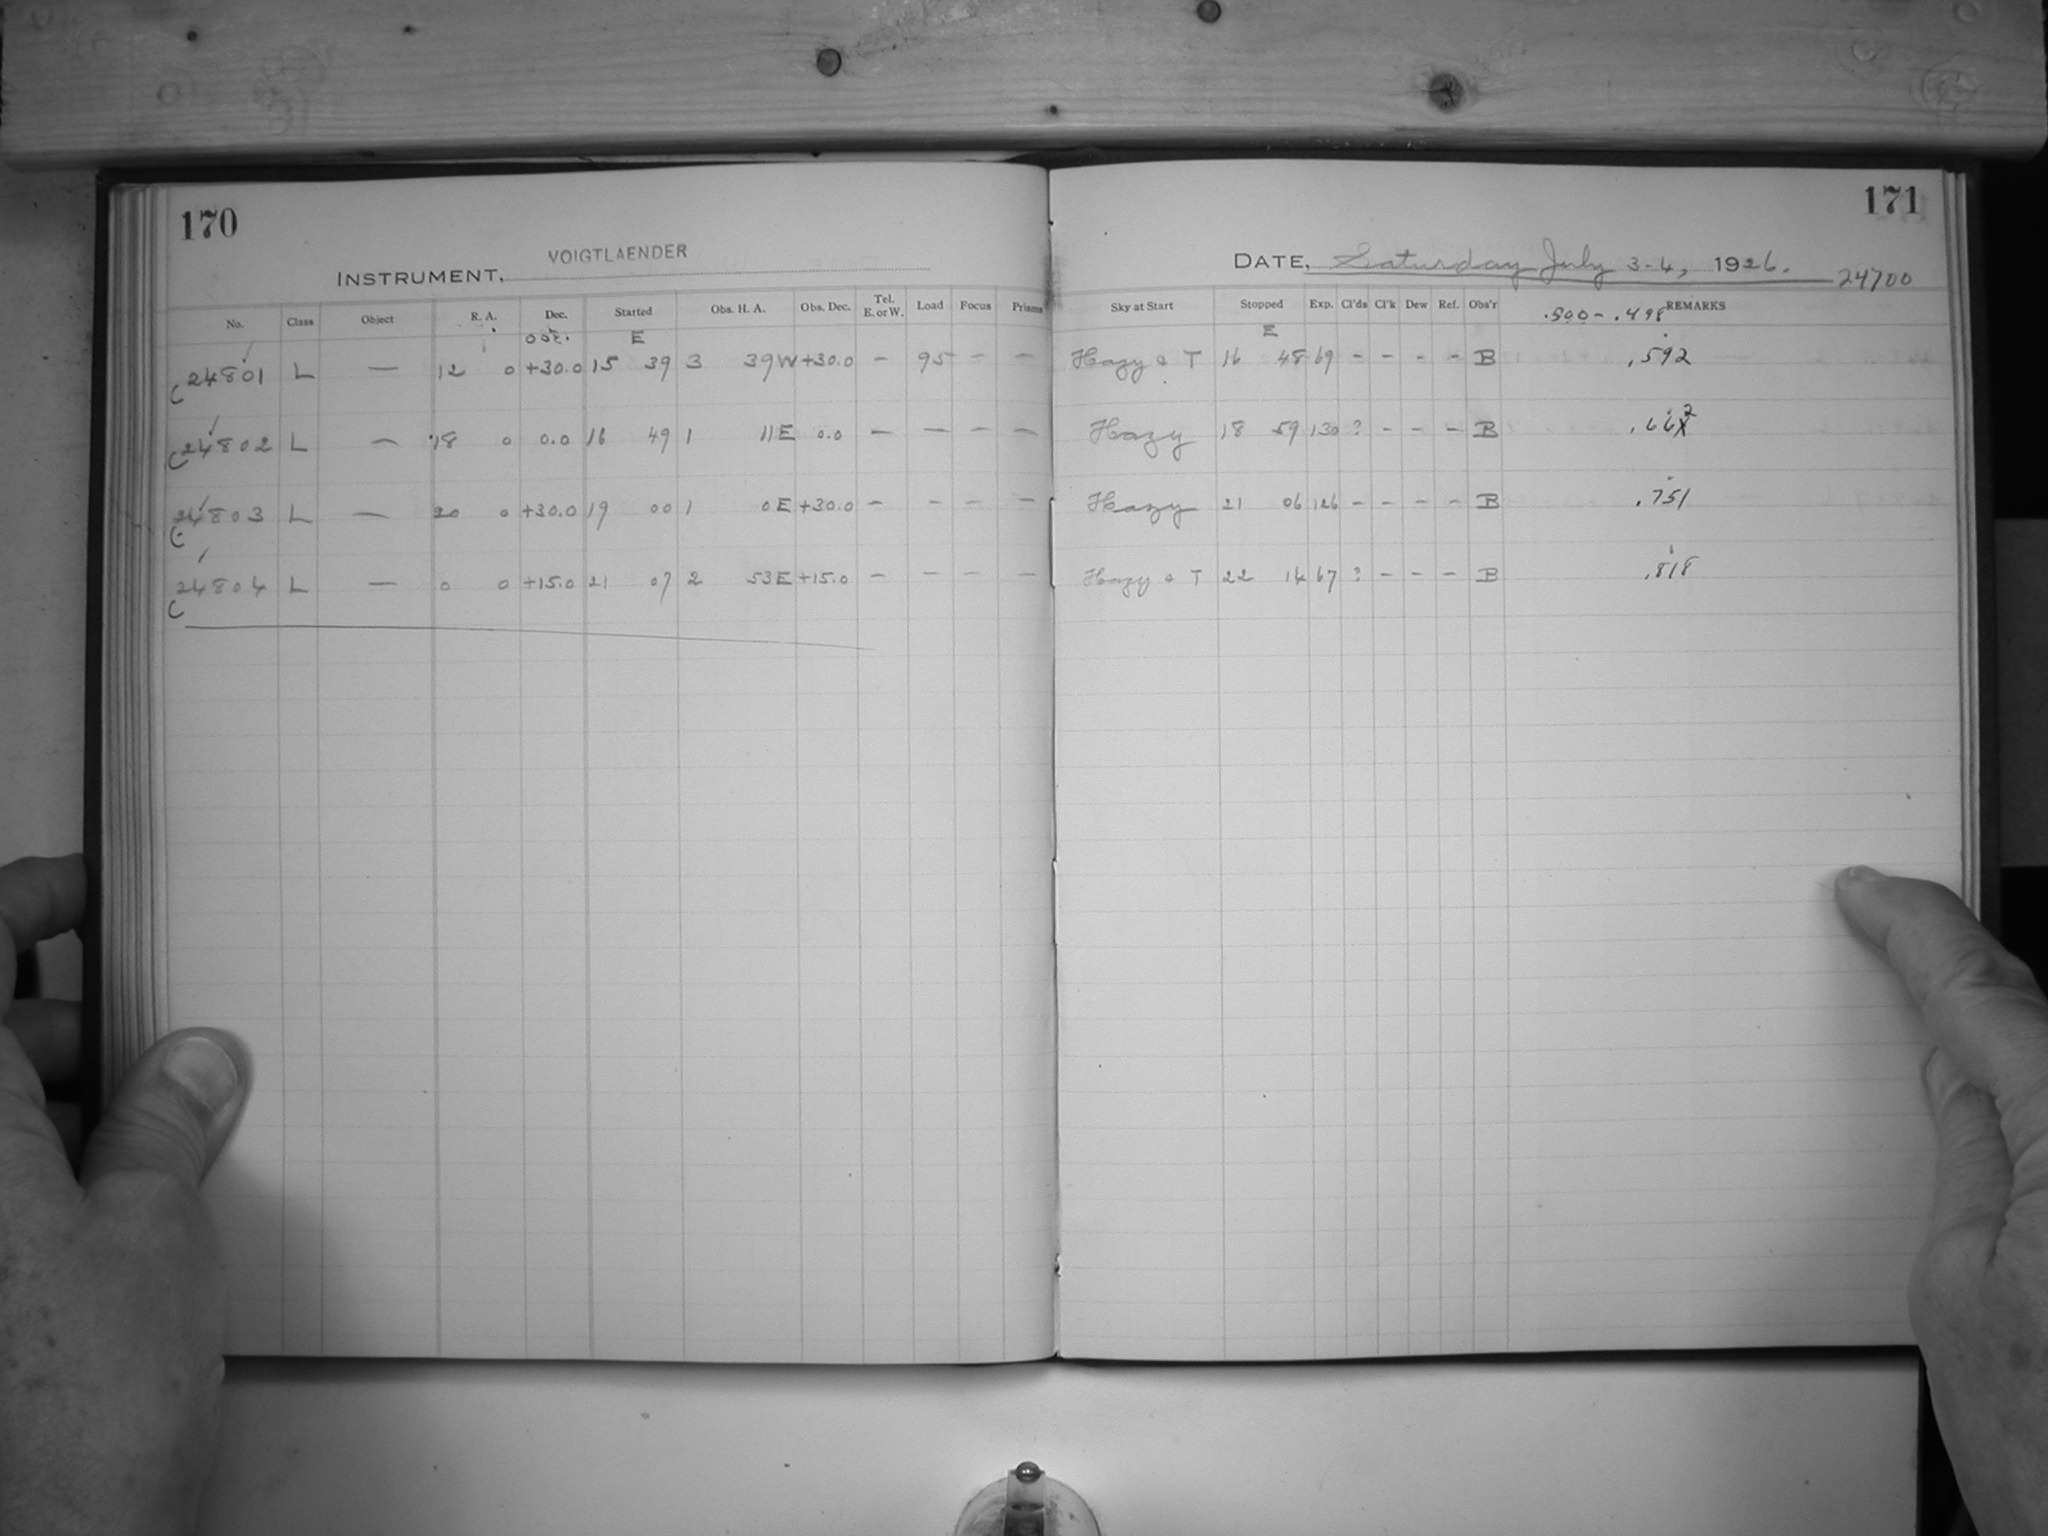 170
VOIGTLAENDER
INSTRUMENT,
No. Class Object R. A. Dec. Started Obs. H. A. Obs. Dec. Tel. E. or W. Load Focus Prisms
E
24801 L — 12 0 +30.0 15 39 3 39W +30.0 — 95 — —
24802 L — 18 0 0.0 16 49 1 11E 0.0 — — — —
24803 L — 20 0 +30.0 19 00 1 0E +30.0 — — — —
24804 L — 0 0 +15.0 21 07 2 53E +15.0 — — — —
171
DATE, Saturday July 3-4, 1926.
24700
Sky at Start Stopped Exp. Cl'ds Cl'k Dew Ref. Obs'r REMARKS
.500 - .498
E
Hazy T 16 48 69 - - - - B .592
Hazy 18 59 130 ? - - - B .662
Hazy 21 06 126 - - - - B .751
Hazy T 22 14 67 ? - - - B .818